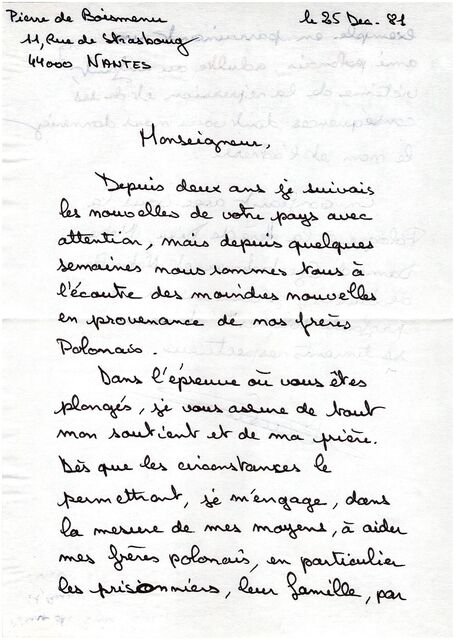 Pierre de Boismenu
le 25 Dec. 81
11, Rue de Strasbourg
44000 NANTES
Monseigneur,
Depuis deux ans je suivais
les nouvelles de votre pays avec
attention, mais depuis quelques
semaines nous sommes tous à
l'écoutre des moindres nouvelles
en provenance de nos frères
Polonais.
Dans l'épreuve où vous êtes
plongés, je vous assure de tout
mon soutient et de ma prière.
Dès que les circonstances le
permettront, je m'engage, dans
la mesure de mes moyens, à aider
mes frères polonais, en particulier
les prisonniers, leur famille, par